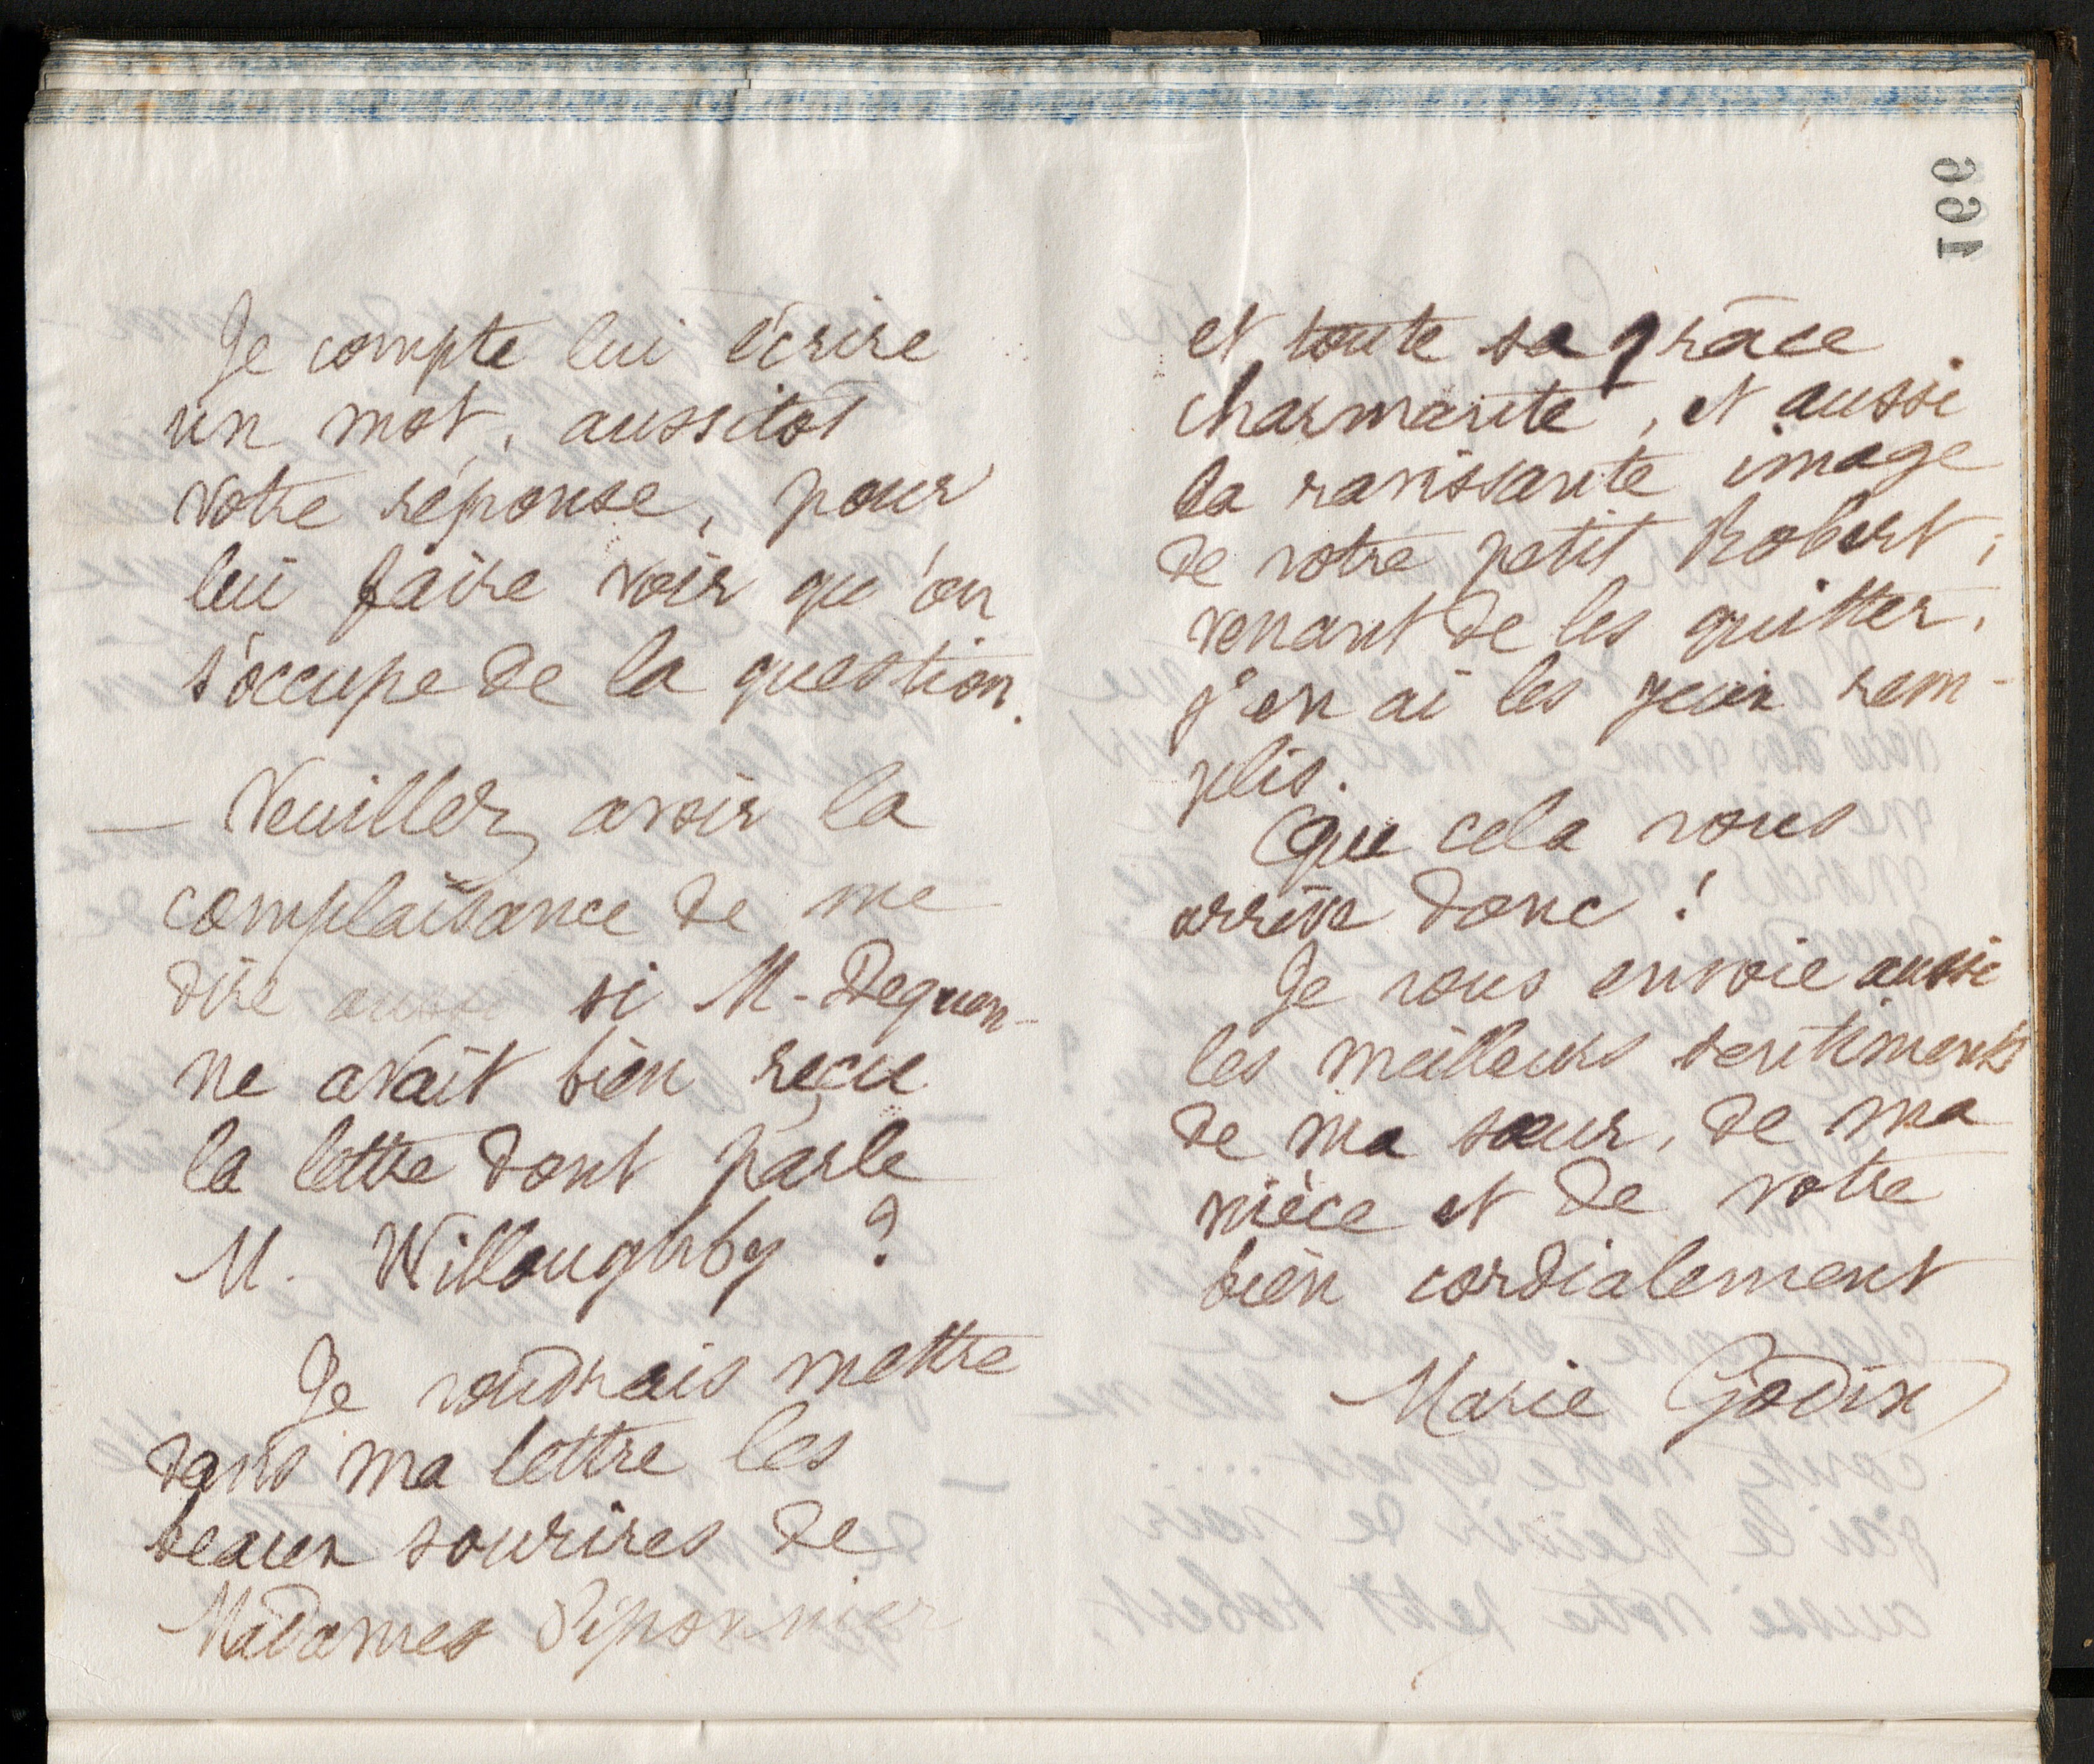 Je compte lui écrire
un mot, aussitôt
votre réponse, pour
lui faire voir qu'on
s'occupe de la question.
— Veuillez avoir la
complaisance de me
dire aussi si M. Dequen-
ne avait bien reçue
la lettre dont parle
M. Willoughby ?
Je voudrais mettre
dans ma lettre les
beaux sourires de
Madames Piponnier
166
et toute sa grâce
charmante, et aussi
la ravissante image
de votre petit Robert ;
venant de les quitter,
j'en ai les yeux rem-
plis.
Que cela vous
arrive donc !
Je vous envoie aussi
les meilleurs sentiments
de ma sœur, de ma
nièce et de votre
bien cordialement
Marie Godin